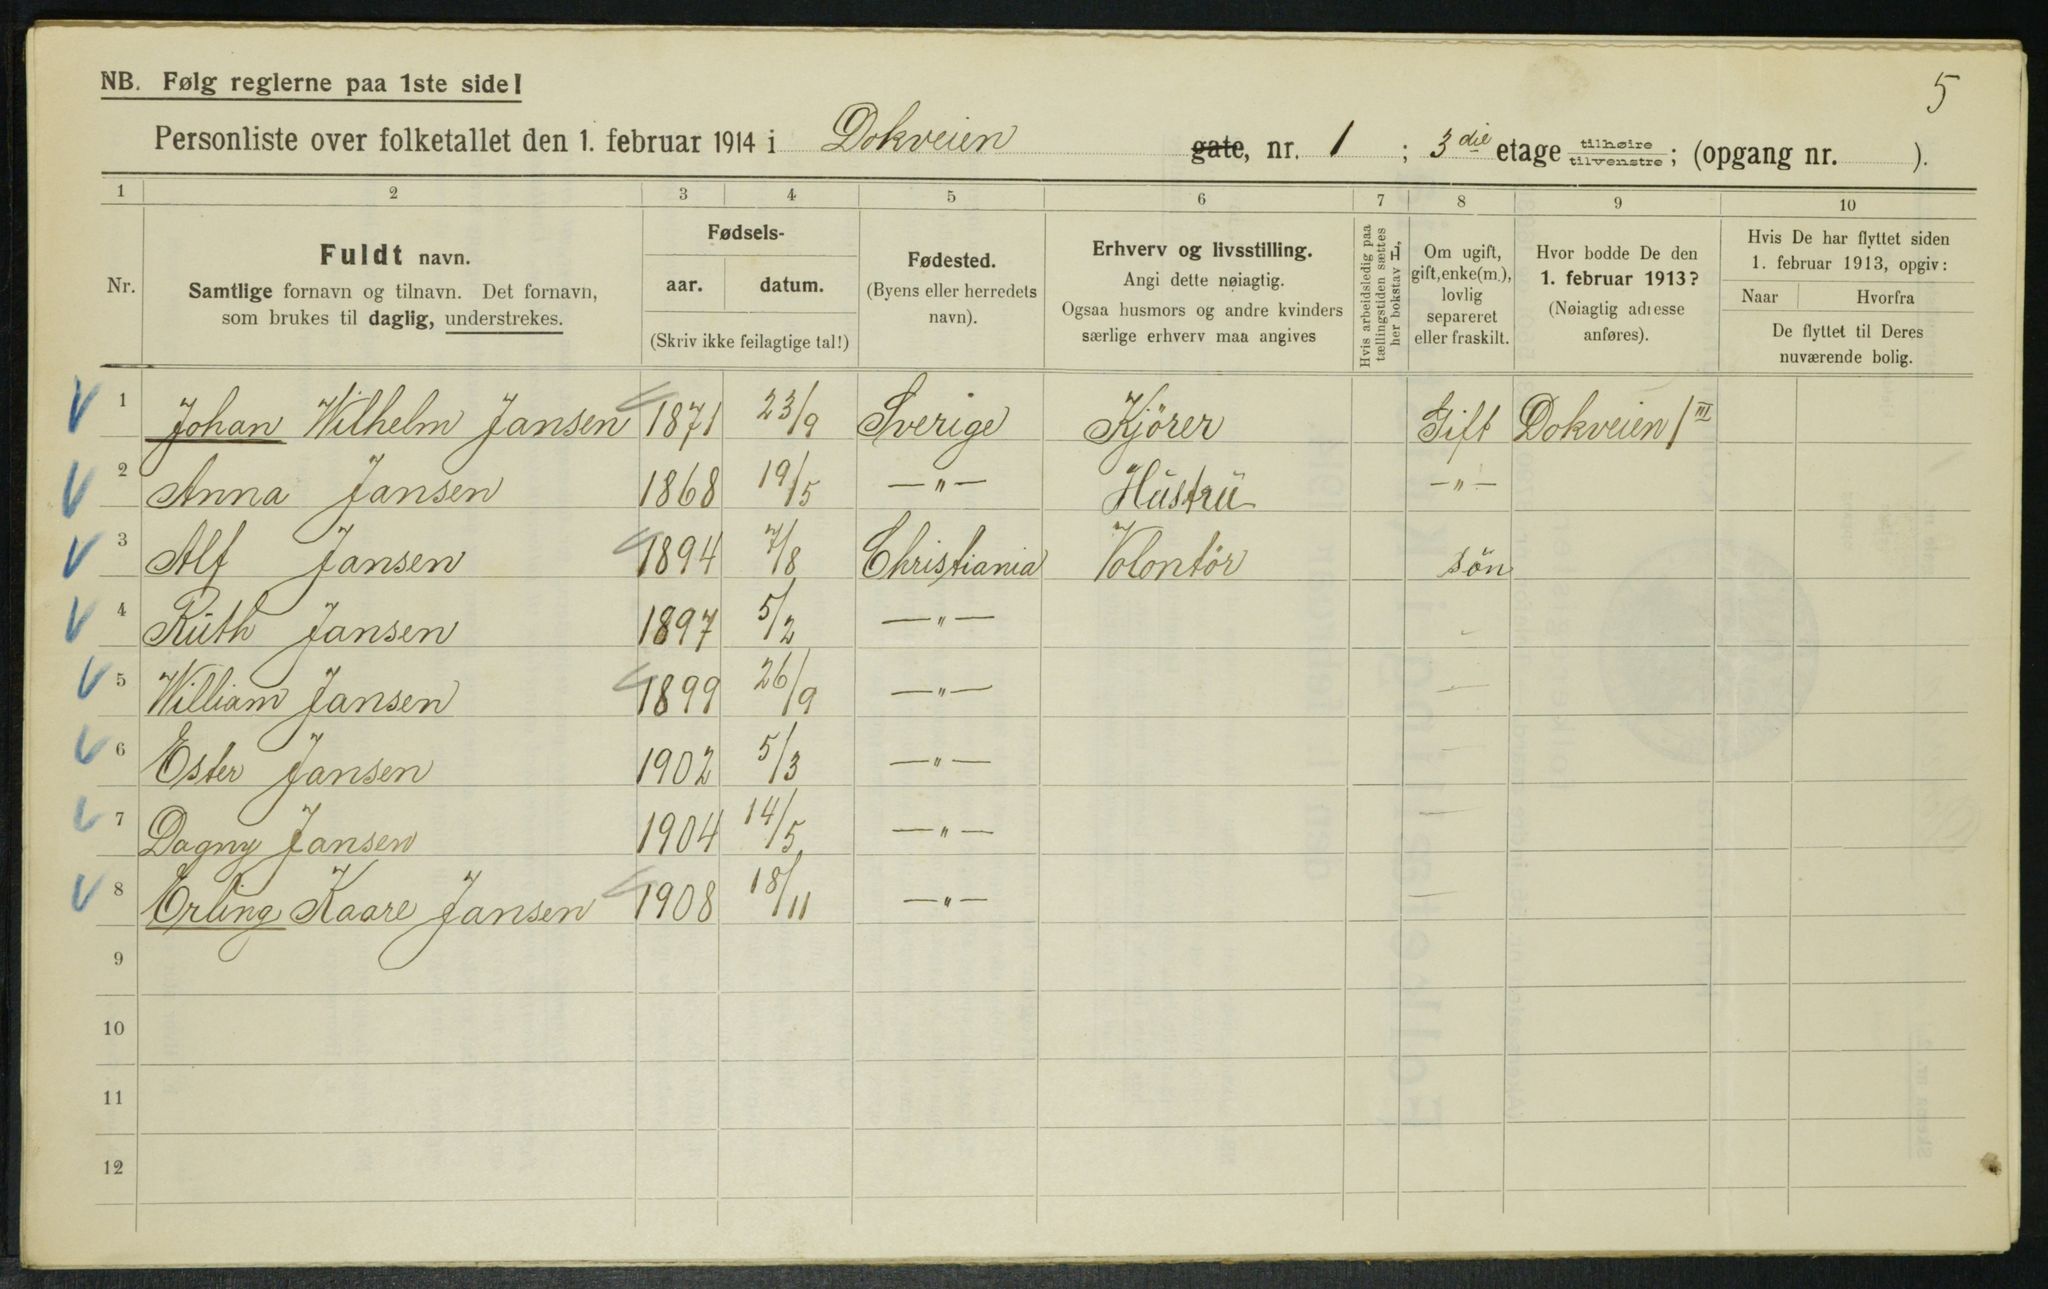 5
NB. Følg reglerne paa 1ste side!
Personliste over folketallet den 1. februar 1914 i Dokveien gate, nr. 1 ; 3die etage tilhøire tilvenstre; (opgang nr. ).
1 2 3 4 5 6 7 8 9 10
Nr.
Fuldt navn.
Samtlige fornavn og tilnavn. Det fornavn,
som brukes til daglig, understrekes.
Fødsels-
aar. datum.
(Skriv ikke feilagtige tal!)
Fødested.
(Byens eller herredets
navn).
Erhverv og livsstilling.
Angi dette nøiagtig.
Ogsaa husmors og andre kvinders
særlige erhverv maa angives
Hvis arbeidsledig paa
tællingstiden sættes
her bokstav L.
Om ugift,
gift, enke(m.),
lovlig
separeret
eller fraskilt.
Hvor bodde De den
1. februar 1913?
(Nøiagtig adresse
anføres).
Hvis De har flyttet siden
1. februar 1913, opgiv:
Naar Hvorfra
De flyttet til Deres
nuværende bolig.
1 Johan Wilhelm Jansen 1871 23/9 Sverige Kjörer Gift Dokveien 1 III
2 Anna Jansen 1868 19/5 —„— Hustru —„—
3 Alf Jansen 1894 7/8 Christiania Volontör sön
4 Ruth Jansen 1897 5/2 —„— —
5 William Jansen 1899 26/9 —„— —
6 Ester Jansen 1902 5/3 —„— —
7 Dagny Jansen 1904 14/5 —„— —
8 Erling Kaare Jansen 1908 18/11 —„— —
9
10
11
12